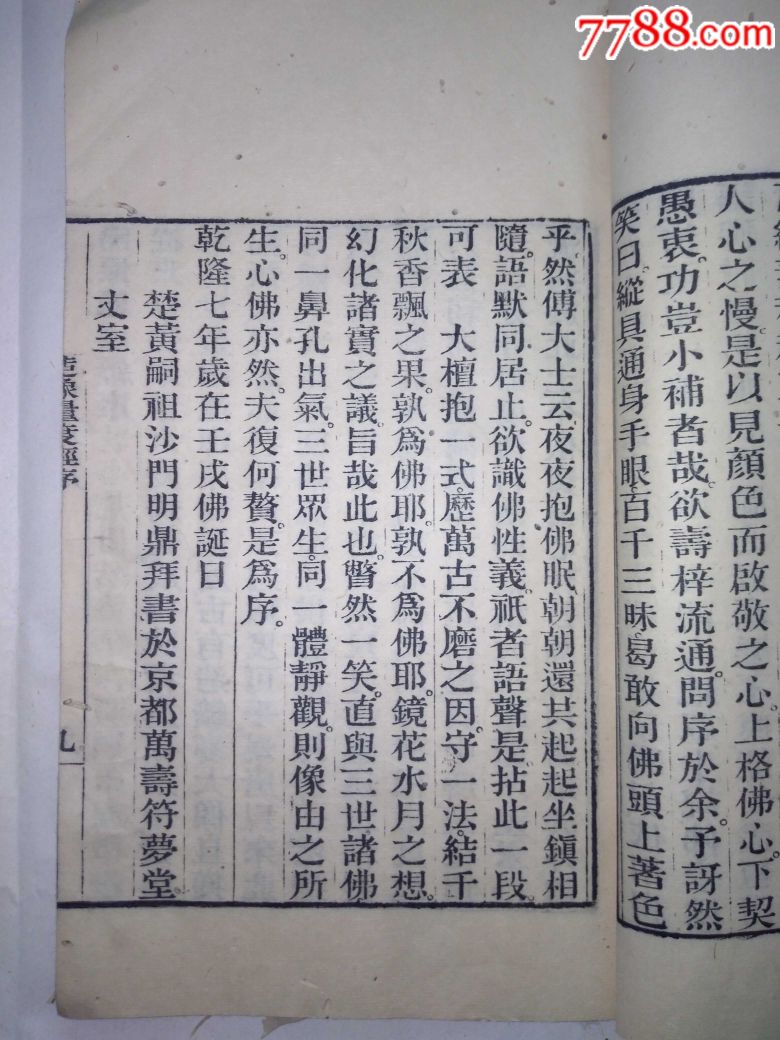 7788.com
人心之慢。是以見顔色而啟敬之心。上格佛心。下契
愚衷。功豈小補者哉。欲壽梓流通。問序於余。予訝然
笑曰。縱具通身手眼。百千三昧。曷敢向佛頭上著色
乎。然傅大士云。夜夜抱佛眠。朝朝還共起。起坐鎮相
隨。語默同居止。欲識佛性義。祇者語聲是。拈此一段。
可表　大檀抱一式。歷萬古不磨之因。守一法。結千
秋香飄之果。孰為佛耶。孰不為佛耶。鏡花水月之想。
幻化諸實之議。旨哉此也。瞥然一笑。直與三世諸佛
同一鼻孔出氣。三世眾生。同一體靜觀。則像由之所
生。心佛亦然。夫復何贅。是為序。
乾隆七年歲在壬戌佛誕日
楚黃嗣祖沙門明鼎拜書於京都萬壽符夢堂。
丈室
造像量度經序
九